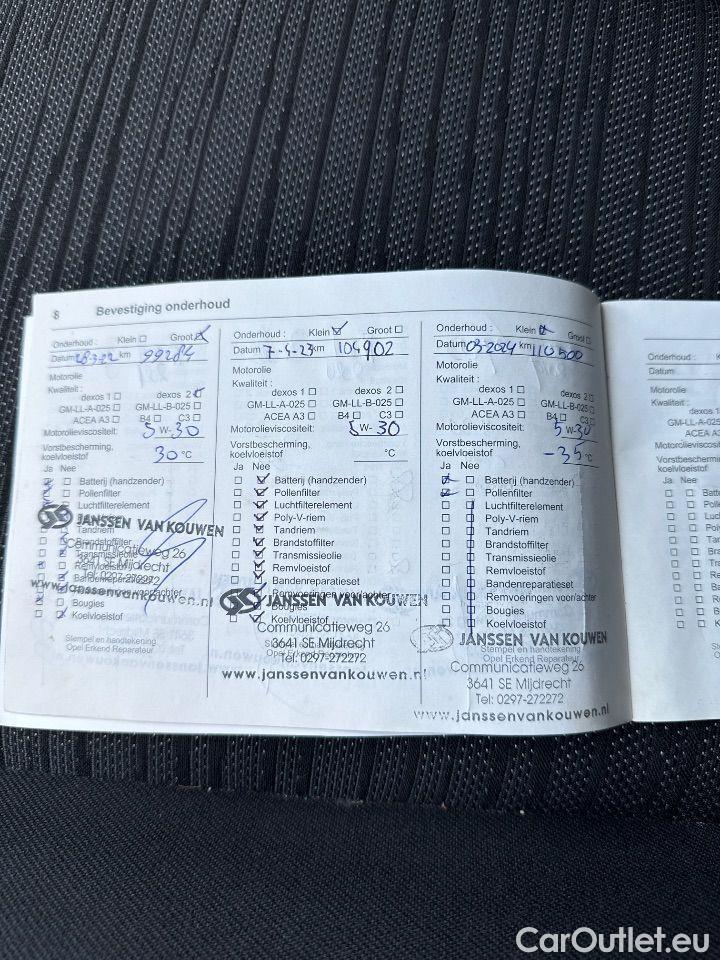 8 Bevestiging onderhoud
Onderhoud : Klein Groot
Datum 28-3-22 km 99284
Motorolie
Kwaliteit :
dexos 1 dexos 2
GM-LL-A-025 GM-LL-B-025
ACEA A3 B4 C3
Motorolieviscositeit: 5 W- 30
Vorstbescherming,
koelvloeistof 30 °C
Ja Nee
Batterij (handzender)
Pollenfilter
Luchtfilterelement
JANSSEN VAN KOUWEN
Tandriem
Brandstoffilter
Communicatieweg 26
Transmissieolie
3641 SE Mijdrecht
Remvloeistof
Tel: 0297-272272
Bandenreparatieset
www.janssenvankouwen.nl
Bougies
Koelvloeistof
Stempel en handtekening
Opel Erkend Reparateur
Onderhoud : Klein Groot
Datum 7-4-23 km 104902
Motorolie
Kwaliteit :
dexos 1 dexos 2
GM-LL-A-025 GM-LL-B-025
ACEA A3 B4 C3
Motorolieviscositeit: 5 W- 30
Vorstbescherming,
koelvloeistof °C
Ja Nee
Batterij (handzender)
Pollenfilter
Luchtfilterelement
Poly-V-riem
Tandriem
Brandstoffilter
Transmissieolie
Remvloeistof
Bandenreparatieset
Remvoeringen voor/achter
JANSSEN VAN KOUWEN
Bougies
Koelvloeistof
Communicatieweg 26
3641 SE Mijdrecht
Tel: 0297-272272
www.janssenvankouwen.nl
Onderhoud : Klein Groot
Datum 03-2024 km 110500
Motorolie
Kwaliteit :
dexos 1 dexos 2
GM-LL-A-025 GM-LL-B-025
ACEA A3 B4 C3
Motorolieviscositeit: 5 W-30
Vorstbescherming,
koelvloeistof -35 °C
Ja Nee
Batterij (handzender)
Pollenfilter
Luchtfilterelement
Poly-V-riem
Tandriem
Brandstoffilter
Transmissieolie
Remvloeistof
Bandenreparatieset
Remvoeringen voor/achter
Bougies
Koelvloeistof
JANSSEN VAN KOUWEN
Stempel en handtekening
Opel Erkend Reparateur
Communicatieweg 26
3641 SE Mijdrecht
Tel: 0297-272272
www.janssenvankouwen.nl
Onderhoud :
Datum
Motorolie
Kwaliteit :
dexos
GM-LL-A-025
ACEA A3
Ja Nee
CarOutlet.eu